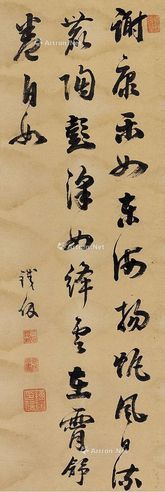 謝康樂如東海揚帆風日流
麗陶彭澤如絳雲在霄舒
卷自如
鐵保
Artron.Net